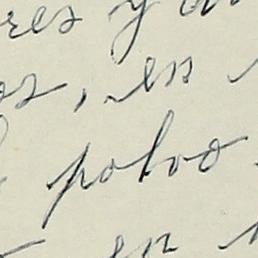 res y
os, en
polvo
en